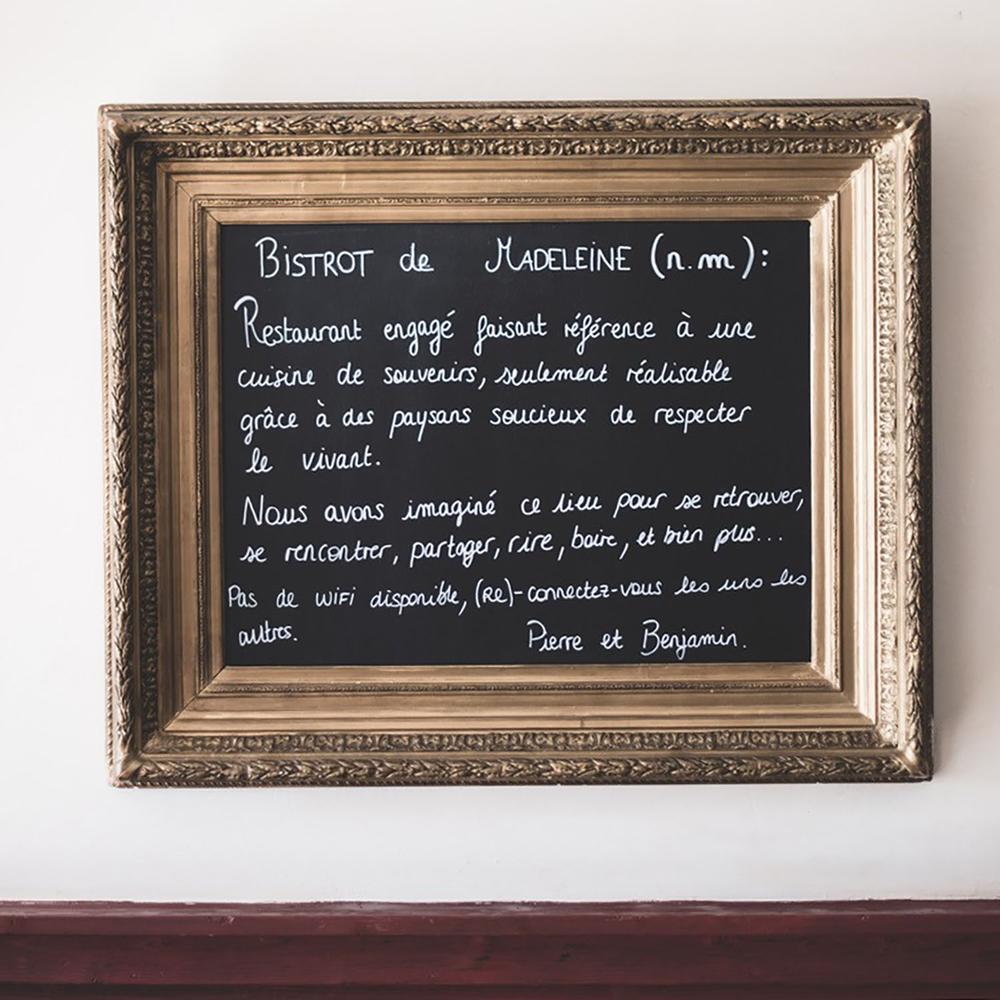 BISTROT de MADELEINE (n.m):
Restaurant engagé faisant référence à une
cuisine de souvenirs, seulement réalisable
grâce à des paysans soucieux de respecter
le vivant.
Nous avons imaginé ce lieu pour se retrouver,
se rencontrer, partager, rire, boire, et bien plus...
Pas de WiFi disponible, (Re)-connectez-vous les uns les
autres.
Pierre et Benjamin.